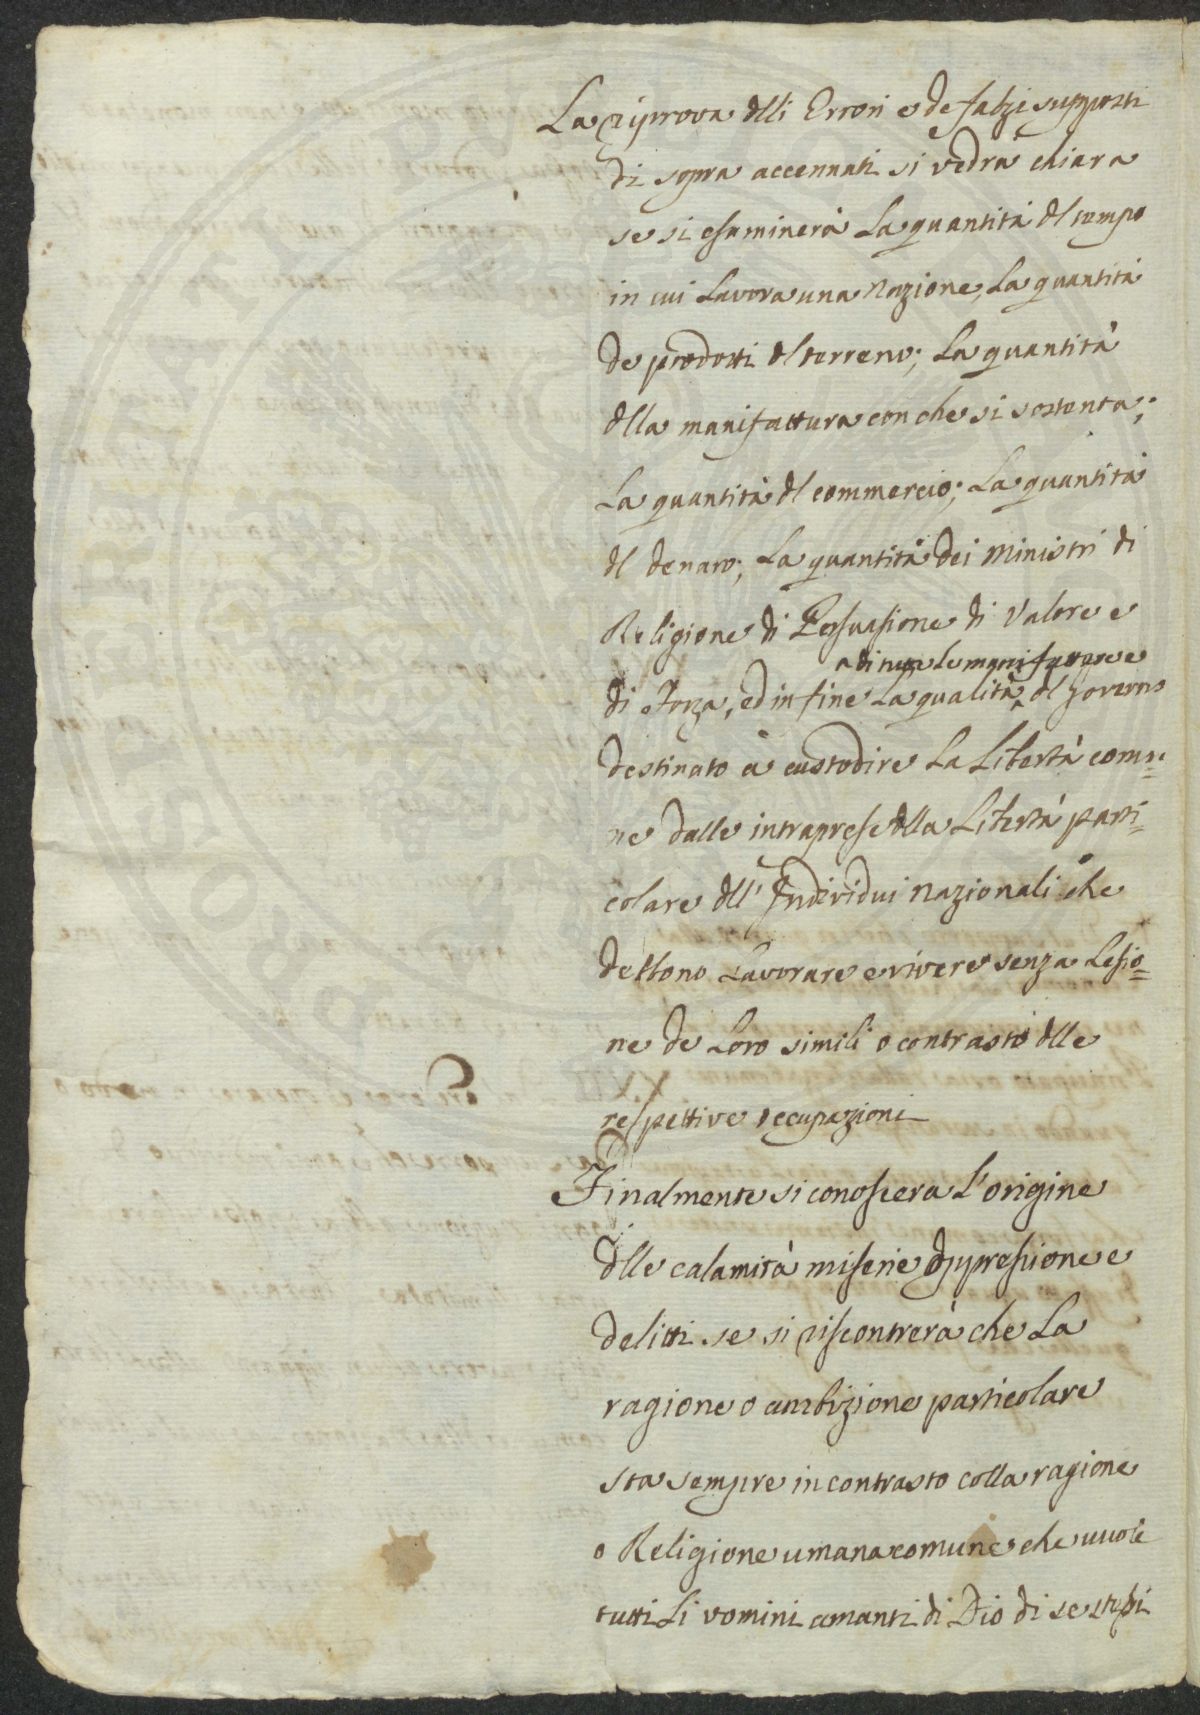 La riprova dlli Errori e de falzi supposti
di sopra accennati si vedrà chiara
se si esaminerà La quantità dl tempo
in cui Lavora una Nazione, La quantità
de prodotti dl terreno; La quantità
dlla manifattura con che si sostenta;
La quantità dl commercio; La quantità
dl denaro; La quantità dei Ministri di
Religione di Persuasione di Valore e
di tutte le manifatture e
di Forza, ed in fine La qualità ^ dl Governo
destinato à custodire La Libertà comu=
ne dalle intraprese dlla Libertà parti=
colare dll' Individui Nazionali che
debbono Lavorare e vivere senza Lesio=
ne de Loro simili o contrasto dlle
respettive occupazioni
Finalmente si conoscera L'origine
dlle calamità miserie oppressione e
delitti se si riscontrerà che La
ragione o ambizione particolare
sta sempre in contrasto colla ragione
o Religione umana comune che vuole
tutti Li vomini amanti di Dio di se stessi